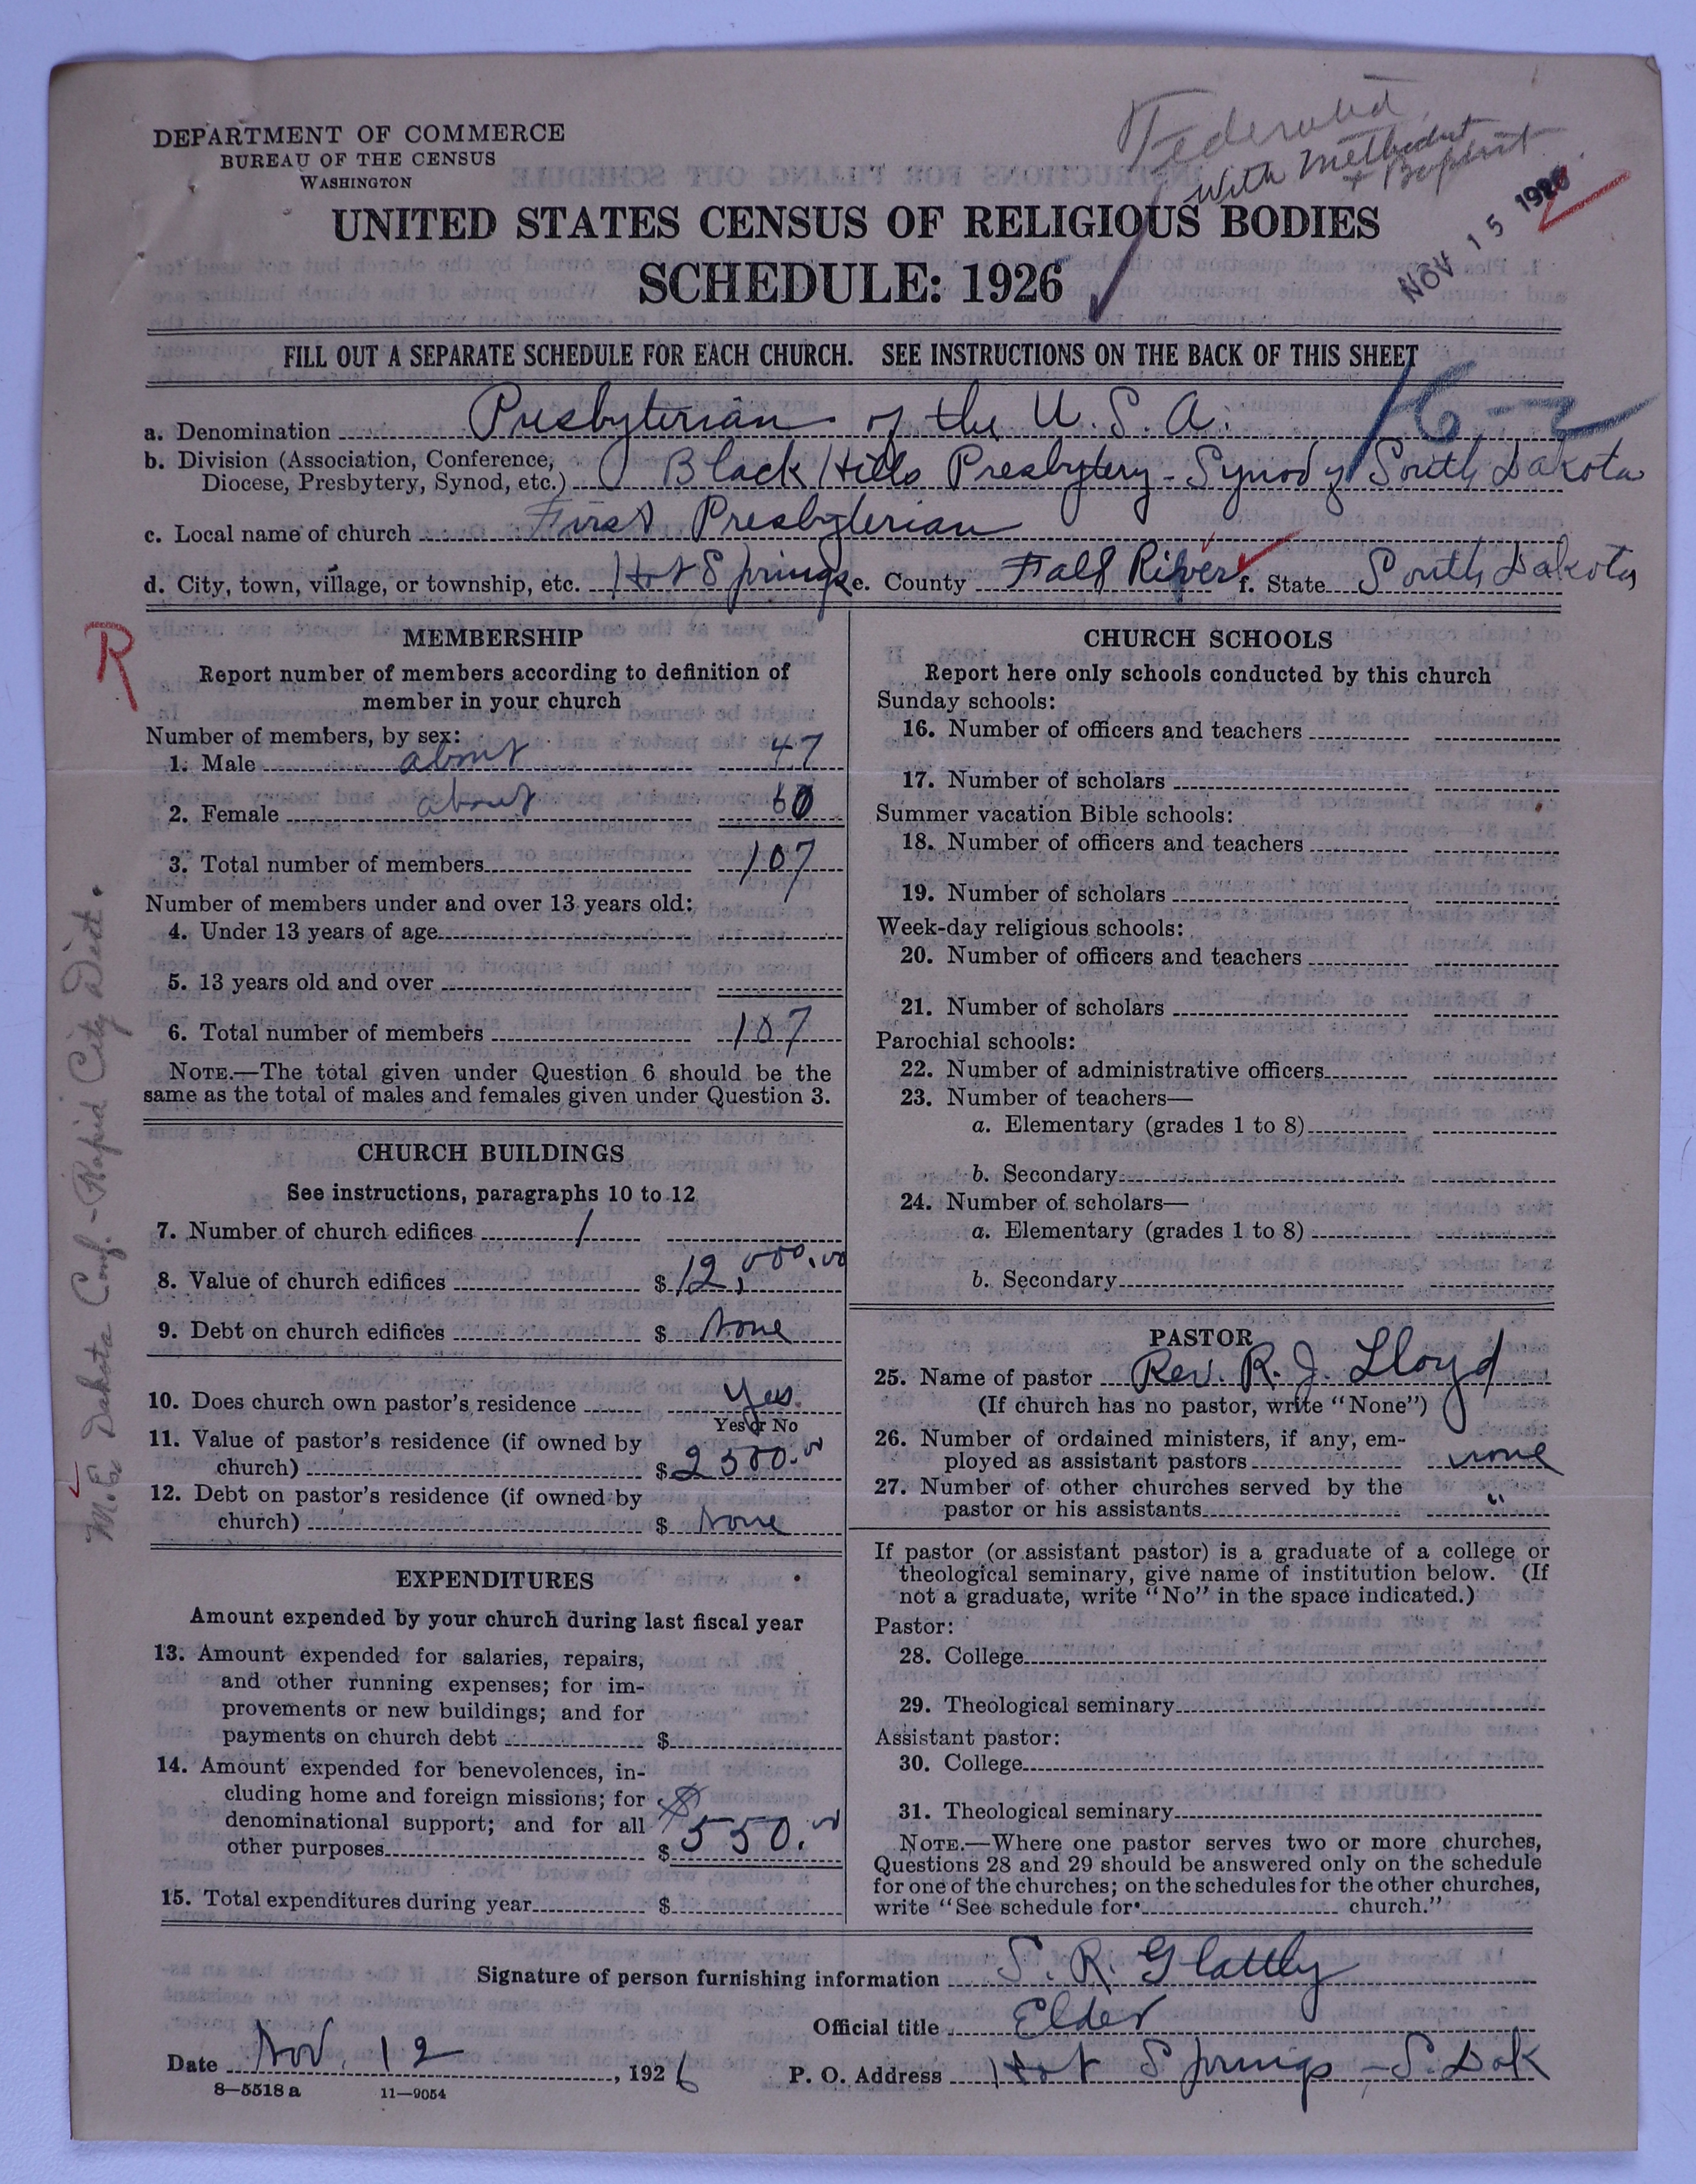 Federated
with Methodist
+ Baptist
DEPARTMENT OF COMMERCE
BUREAU OF THE CENSUS
WASHINGTON
NOV 15 1926
UNITED STATES CENSUS OF RELIGIOUS BODIES
SCHEDULE: 1926
FILL OUT A SEPARATE SCHEDULE FOR EACH CHURCH. SEE INSTRUCTIONS ON THE BACK OF THIS SHEET
16-2
a. Denomination Presbyterian of the U. S. A.
b. Division (Association, Conference,
Diocese, Presbytery, Synod, etc.) Black Hills Presbytery - Synod of South Dakota
c. Local name of church First Presbyterian
d. City, town, village, or township, etc. Hot Springs e. County Fall River f. State South Dakota
R
M. E. Dakota Conf. - Rapid City Dist.
MEMBERSHIP
Report number of members according to definition of
member in your church
Number of members, by sex:
1. Male about 47
2. Female about 60
3. Total number of members 107
Number of members under and over 13 years old:
4. Under 13 years of age
5. 13 years old and over
6. Total number of members 107
NOTE.—The total given under Question 6 should be the
same as the total of males and females given under Question 3.
CHURCH BUILDINGS
See instructions, paragraphs 10 to 12
7. Number of church edifices 1
8. Value of church edifices $ 12,000.00
9. Debt on church edifices $ None
10. Does church own pastor's residence Yes.
Yes or No
11. Value of pastor's residence (if owned by
church) $ 2500.00
12. Debt on pastor's residence (if owned by
church) $ None
EXPENDITURES
Amount expended by your church during last fiscal year
13. Amount expended for salaries, repairs,
and other running expenses; for im-
provements or new buildings; and for
payments on church debt $
14. Amount expended for benevolences, in-
cluding home and foreign missions; for
denominational support; and for all
other purposes $ 550.00
15. Total expenditures during year $
CHURCH SCHOOLS
Report here only schools conducted by this church
Sunday schools:
16. Number of officers and teachers
17. Number of scholars
Summer vacation Bible schools:
18. Number of officers and teachers
19. Number of scholars
Week-day religious schools:
20. Number of officers and teachers
21. Number of scholars
Parochial schools:
22. Number of administrative officers
23. Number of teachers—
a. Elementary (grades 1 to 8)
b. Secondary
24. Number of scholars—
a. Elementary (grades 1 to 8)
b. Secondary
PASTOR
25. Name of pastor Rev. R. J. Lloyd
(If church has no pastor, write "None")
26. Number of ordained ministers, if any, em-
ployed as assistant pastors none
27. Number of other churches served by the
pastor or his assistants "
If pastor (or assistant pastor) is a graduate of a college or
theological seminary, give name of institution below. (If
not a graduate, write "No" in the space indicated.)
Pastor:
28. College
29. Theological seminary
Assistant pastor:
30. College
31. Theological seminary
NOTE.—Where one pastor serves two or more churches,
Questions 28 and 29 should be answered only on the schedule
for one of the churches; on the schedules for the other churches,
write "See schedule for church."
Signature of person furnishing information S. R. Glattly
Official title Elder
Date Nov. 12, 1926 P. O. Address Hot Springs - S. Dak
8—5518 a 11—9054